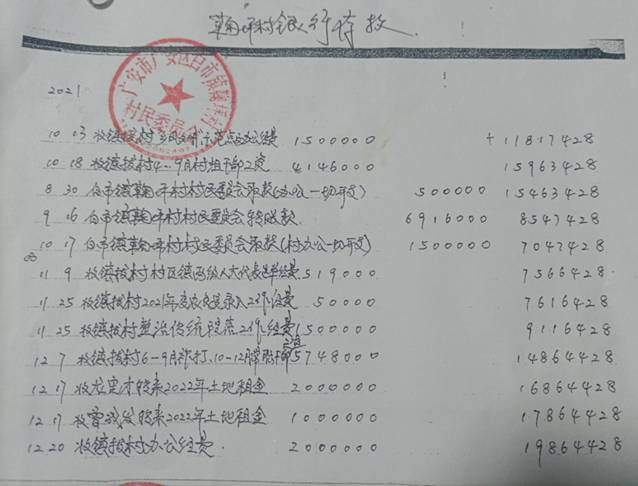 村银行存款
广安市广安区白市镇
村民委员会
2021
10 03 收镇拨村 示范点办公费 1500000 +11817428
10 18 收镇拨村4-9月村组干部工资 4146000 15963428
8 30 白市镇 村村民委员会取款(办公一切开支) 500000 15463428
9 16 白市镇 村村民委员会转账款 6916000 8547428
10 17 白市镇 村村民委员会取款(村办公一切开支) 1500000 7047428
11 9 收镇拨村 人大代表选举经费 519000 7566428
11 25 收镇拨村2021年 录入工作经费 50000 7616428
11 25 收镇拨村整治传统 工作经费 1500000 9116428
12 7 收镇拨村6-9月 10-12月 5748000 14864428
12 17 收 交来2022年土地租金 2000000 16864428
12 17 收曾 交来2022年土地租金 1000000 17864428
12 20 收镇拨村办公经费 2000000 19864428